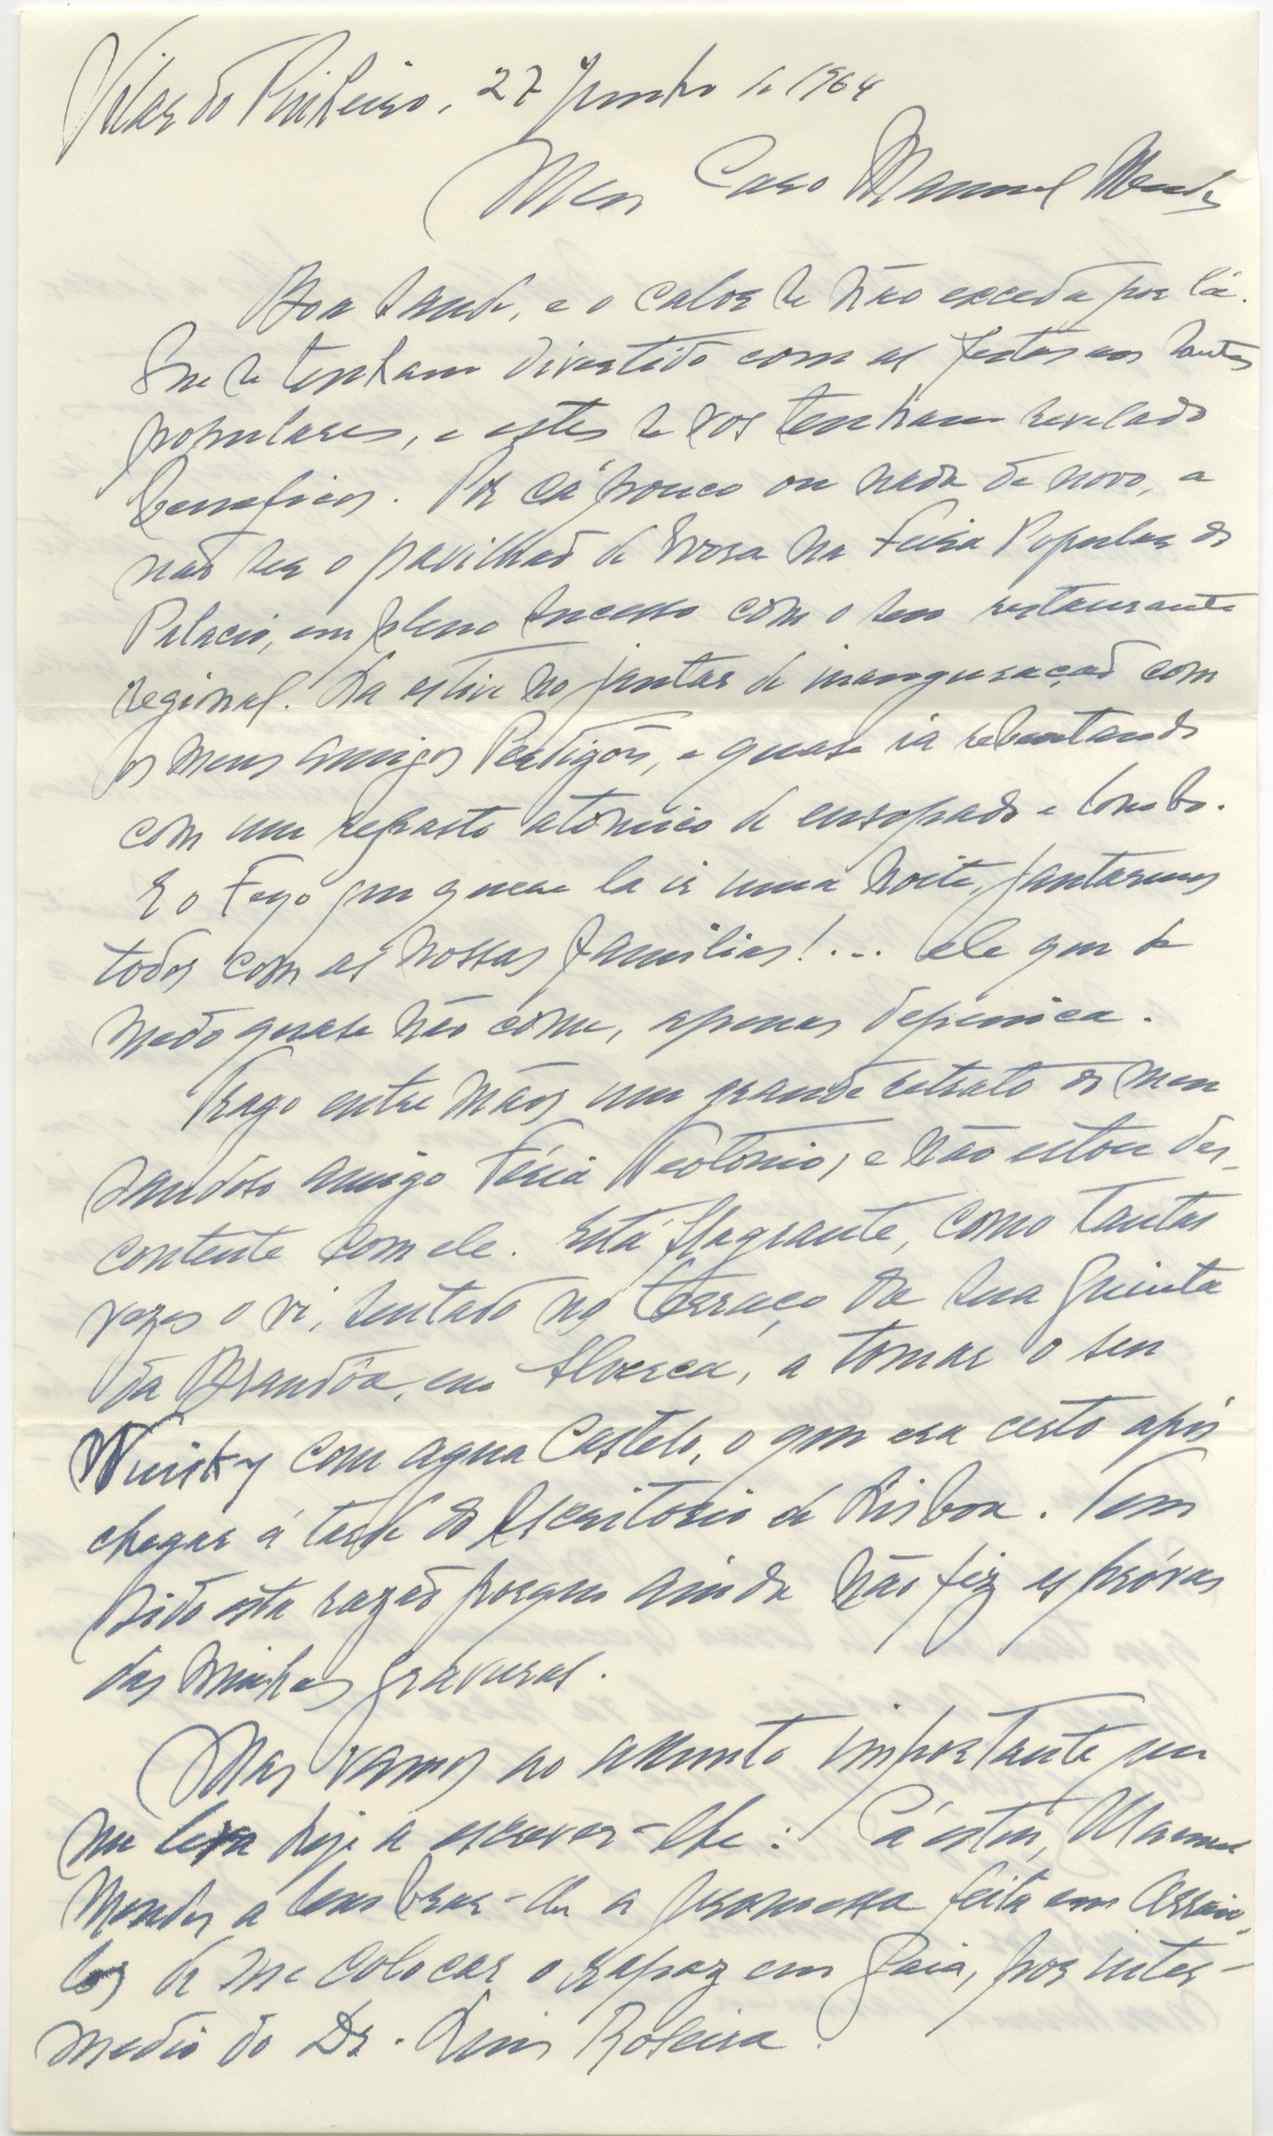 Vilar do Pinheiro, 27 Junho de 1964
Meu Caro Manuel Mendes
Boa saude, e o calor se não exceda por lá.
Que se tenham divertido com as festas aos Santos
populares, e estes se vos tenham revelado
beneficos. Por cá pouco ou nada de novo, a
não ser o pavilhão de Evora na Feira Popular do
Palacio, em pleno sucesso com o seu restaurante
regional. Lá estive no jantar de inauguração com
os meus amigos Perdigões, e quase ia rebentando
com um repasto atómico de ensopado e lombo.
E o que quere la ir uma noite, jantarmos
todos com as nossas familias!... ele que de
medo quase não come, apenas depenica.
Trago entre mãos um grande retrato do meu
saudoso amigo Féria Teotónio, e não estou des-
contente com ele. Está flagrante, como tantas
vezes o vi, sentado no terraço da sua Quinta
da Brandôa, em Alverca, a tomar o seu
Wuisky com agua Castelo, o que era certo após
chegar á tarde do Escritorio de Lisboa. Tem
sido esta razão porque ainda não fiz as próvas
das minhas gravuras.
Mas vamos ao assunto importante que
me leva hoje a escrever-lhe: Cá estou, Manuel
Mendes a lembrar-lhe a promessa feita em Arraio-
los de me colocar o rapaz em Gaia, por inter-
medio do Dr. Luis Roseira.